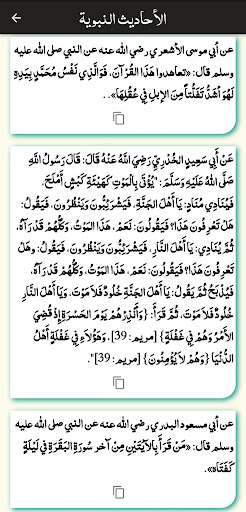 الأحاديث النبوية
عن أبي موسى الأشعري رضي الله عنه عن النبي صلى الله عليه
وسلم قال: «تعاهدوا هَذَا القُرْآنَ، فَوَالَّذِي نَفْسُ مُحَمَّدٍ بِيَدِهِ
لَهُوَ أَشَدُّ تَفَلُّتًا مِنَ الإِبِلِ فِي عُقُلِهَا».
عَنْ أَبِي سَعِيدٍ الخُدْرِيِّ رَضِيَ اللَّهُ عَنْهُ قَالَ: قَالَ رَسُولُ اللَّهِ
صَلَّى اللهُ عَلَيْهِ وَسَلَّمَ: "يُؤْتَى بِالْمَوْتِ كَهَيْئَةِ كَبْشٍ أَمْلَحَ،
فَيُنَادِي مُنَادٍ: يَا أَهْلَ الجَنَّةِ، فَيَشْرَئِبُّونَ وَيَنْظُرُونَ، فَيَقُولُ:
هَلْ تَعْرِفُونَ هَذَا؟ فَيَقُولُونَ: نَعَمْ، هَذَا المَوْتُ، وَكُلُّهُمْ قَدْ رَآهُ،
ثُمَّ يُنَادِي: يَا أَهْلَ النَّارِ، فَيَشْرَئِبُّونَ وَيَنْظُرُونَ، فَيَقُولُ: وهَلْ
تَعْرِفُونَ هَذَا؟ فَيَقُولُونَ: نَعَمْ، هَذَا المَوْتُ، وَكُلُّهُمْ قَدْ رَآهُ،
فَيُذْبَحُ ثُمَّ يَقُولُ: يَا أَهْلَ الجَنَّةِ خُلُودٌ فَلاَ مَوْتَ، وَيَا أَهْلَ النَّارِ
خُلُودٌ فَلاَ مَوْتَ، ثُمَّ قَرَأَ: {وَأَنْذِرْهُمْ يَوْمَ الحَسْرَةِ إِذْ قُضِيَ
الأَمْرُ وَهُمْ فِي غَفْلَةٍ} [مريم: 39]، وَهَؤُلاَءِ فِي غَفْلَةٍ أَهْلُ
الدُّنْيَا {وَهُمْ لاَ يُؤْمِنُونَ} [مريم: 39]".
عن أبي مسعود البدري رضي الله عنه عن النبي صلى الله عليه
وسلم قال: «مَنْ قَرَأَ بِالْآيَتَيْنِ مِنْ آخر سُورَةِ البَقَرَةِ فِي لَيْلَةٍ
كَفَتَاه».